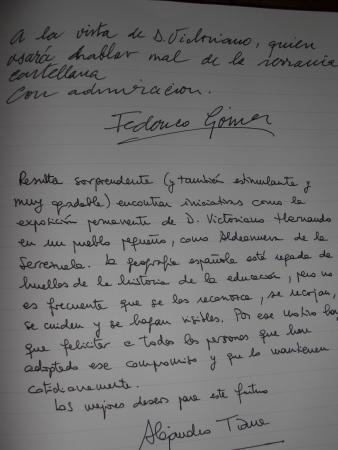 A la vista de D. Victoriano, quien
osará hablar mal de la serranía
castellana
Con admiracion.
Federico Gómez
Resulta sorprendente (y también estimulante y
muy agradable) encontrar iniciativas como la
exposición permanente de D. Victoriano Hernando
en un pueblo pequeño, como Aldeanueva de la
Serrezuela. La geografía española está regada de
huellas de la historia de la educación, pero no
es frecuente que se las reconozca, se recojan,
se cuiden y se hagan visibles. Por ese motivo hay
que felicitar a todas las personas que han
adoptado ese compromiso y que lo mantienen
cotidianamente.
Los mejores deseos para este futuro
Alejandro Tiana